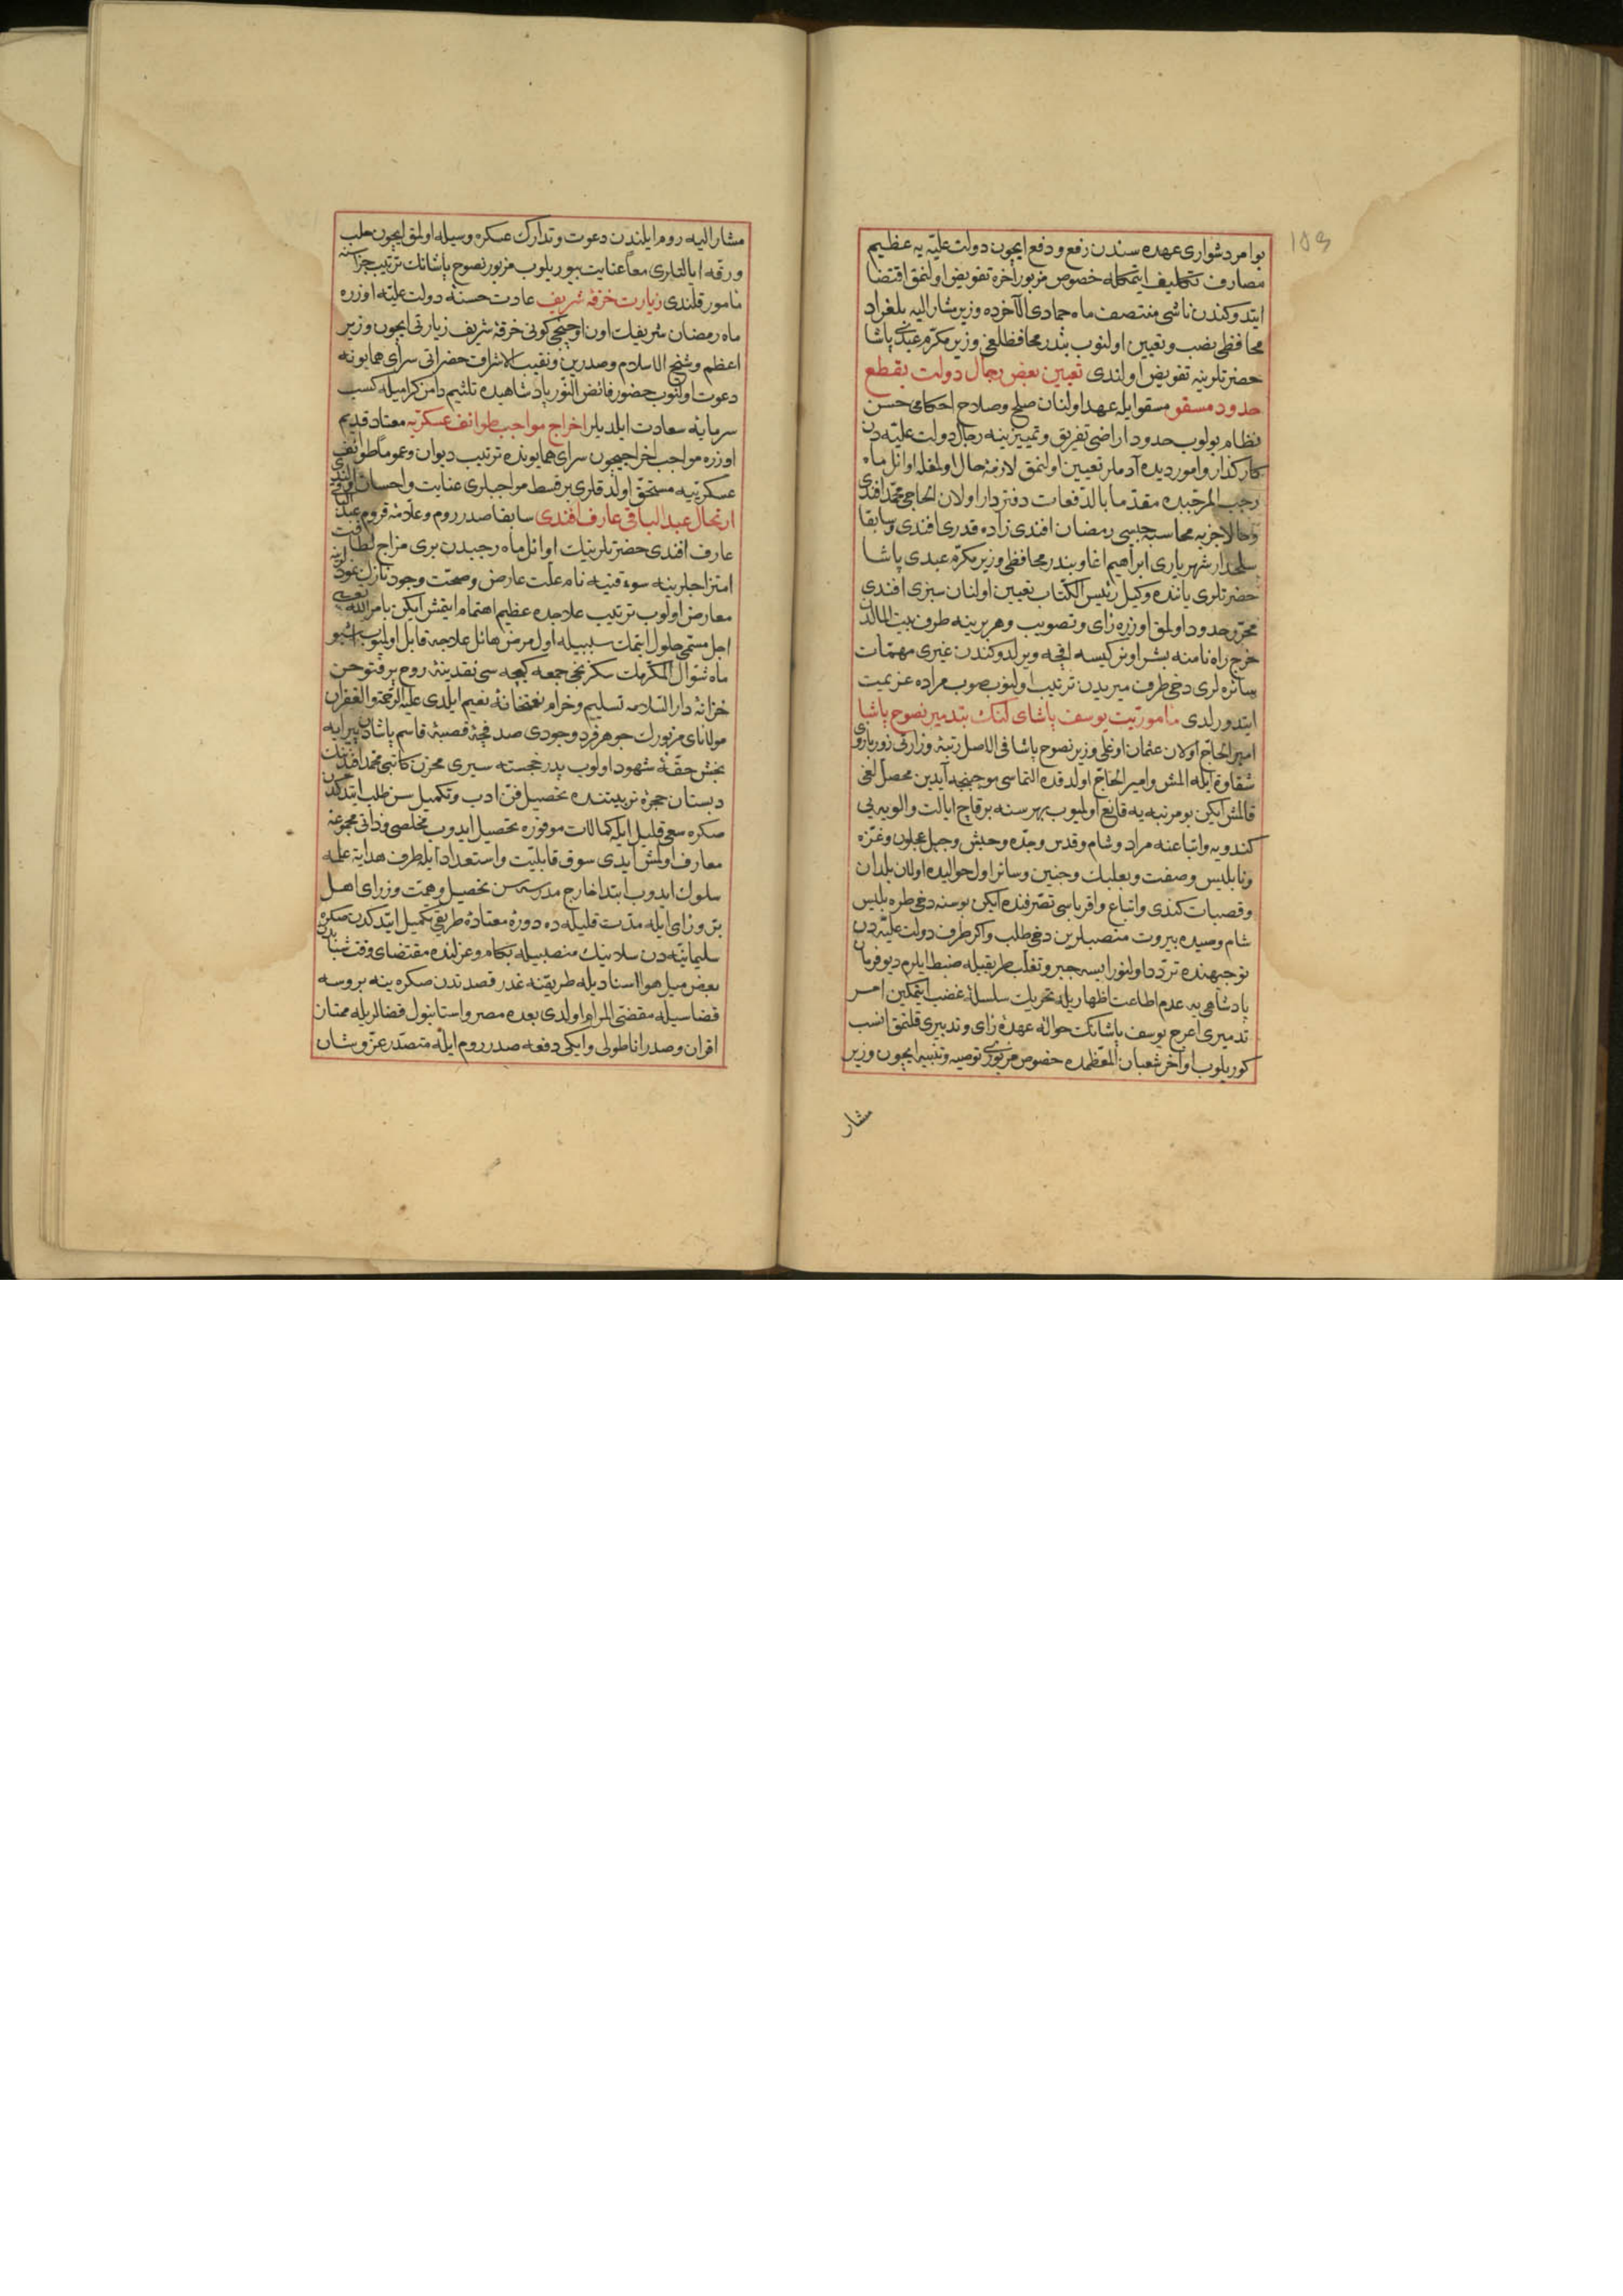 بو امر دشواری عهده سندن رفع و دفع ایچون دولت علیّه یه عظیم
مصارف تکلیف ایتمکله خصوص مزبور آخره تفویض اولنمق اقتضا
ایتدوکندن ناشی منتصف ماه جمادی الآخرده وزیر مشار الیه بلغراد
محافظی نصب و تعیین اولنوب بندر محافظلغی وزیر مکرّم عبدی پاشا
حضرتلرینه تفویض اولندی تعیین بعض رجال دولت بقطع
حدود مسقو مسقو ایله عهد اولنان صلح و صلاح احکامی حسن
نظام بولوب حدود اراضی تفریق و تمییزینه رجال دولت علیّه دن
کارکذار و امور دیده آدملر تعیین اولنمق لازمهٔ حال اولمغله اوائل ماه
رجب المرجّبده مقدّما بالدّفعات دفتردار اولان الحاجی محمّد افندی
و حالا جزیه محاسبه جیسی رمضان افندی زاده قدری افندی و سابقا
سلحدار شهریاری ابراهیم اغا و بندر محافظی وزیر مکرّم عبدی پاشا
حضرتلری یاننده وکیل رئیس الکتّاب تعیین اولنان سبزی افندی
محرّر حدود اولمق اوزره رای و تصویب و هر برینه طرف بیت المالدن
خرج راه نامنه بشر اونر کیسه اقچه ویرلدوکندن غیری مهمّات
سائره لری دخی طرف میریدن ترتیب اولنوب صوب مراده عزیمت
ایتدورلدی مأموریّت یوسف پاشای لنك بتدمیر نصوح پاشا
امیر الحاج اولان عثمان اوغلی وزیر نصوح پاشا فی الاصل رتبهٔ وزارتی زور بازوی
شقاوة ایله المش و امیر الحاجّ اولدقده التماسی موجبنجه آیدین محصّللغی
قالمش ایکن بو مرتبه یه قانع اولمیوب بهر سنه بر قاچ ایالت و الویه یی
کندویه و اتباعنه مراد و شام و قدس و جدّه و حبش و جبل عجلون و غزّه
و نابلیس و صفت و بعلبك و جنین و سائر اول حوالیده اولان بلدان
و قصبات کندی و اتباع و اقرباسی تصرّفنده ایکن بو سنه دخی طرابلیس
شام و صیده بیروت منصبلرین دخی طلب و اکر طرف دولت علیّه دن
توجیهنده تردّد اولنور ایسه جبر و تغلّب طریقیله ضبط ایلرم دیو فرمان
پادشاهی یه عدم اطاعت اظهاریله تحریك سلسلهٔ غضب ایتمکین امر
تدمیری اعرج یوسف پاشانك حوالهٔ عهدهٔ رای و تدبیری قلنمق انسب
کوریلوب اواخر شعبان المعظّمده خصوص مزبوری توصیه و تنبیه ایچون وزیر
مشار
مشار الیه روم ایلندن دعوت و تدارك عسکره وسیله اولمق ایچون حلب
و رقه ایالتلری معاً عنایت بیوریلوب مزبور نصوح پاشانك ترتیب جزاسنه
مأمور قلندی زیارت خرقهٔ شریف عادت حسنهٔ دولت علیّه اوزره
ماه رمضان شریفك اون اوچنجی کونی خرقهٔ شریف زیارتی ایچون وزیر
اعظم و شیخ الاسلام و صدرین و نقیب الاشراف حضراتی سرای همایونه
دعوت اولنوب حضور فائض النّور پادشاهیده تلثیم دامن کرامیله کسب
سرمایهٔ سعادت ایلدیلر اخراج مواجب طوائف عسکریّه معتاد قدیم
اوزره مواجب اخراجیچون سرای همایونده ترتیب دیوان و عموماً طوائف
عسکریّیه مستحقّ اولدقلری بر قسط مواجبلری عنایت و احسان
ارتحال عبد الباقی عارف افندی سابقا صدر روم و علاّمهٔ قروم عبد الباقی
عارف افندی حضرتلرینك اوائل ماه رجبدن بری مزاج لطافت
امتزاجلرینه سوء قنیه نام علّت عارض و صحّت وجود نازك
معارض اولوب ترتیب علاجده عظیم اهتمام ایتمش ایکن بامر الله تعالی
اجل مسمّی حلول ایتمك سببیله اول مرض هائل علاجه قابل اولمیوب اشبو
ماه شوّال المکرّمك سکزنجی جمعه کیجه سی نقدینهٔ روح پر فتوحن
خزانهٔ دار السّلامه تسلیم و خرام نعمتخانهٔ نعیم ایلدی علیه الرّحمة و الغفران
مولانای مزبورك جوهر فرد وجودی صدفچهٔ قصبهٔ قاسم پاشادن پیرایه
بخش حقّهٔ شهود اولوب پدر خجسته سیری مخزن کاتبی محمّد افندینك
دبستان حجرهٔ تربیتنده تحصیل فنّ ادب و تکمیل سنّ طلب ایتدکدن
صکره سعی قلیل ایله کمالات موفوره تحصیل ایدوب مخلصی و ذاتی مجموعهٔ
معارف اولمش ایدی سوق قابلیّت و استعداد ایله طرف هدایة علمه
سلوك ایدوب ابتدا خارج مدرسه سن تحصیل و همّت وزرای اهل
بذل و رای ایله مدّت قلیله ده دورهٔ معتادهٔ طریقی تکمیل ایتدکدن صکره
سلیمانیّه دن سلانیك منصبیله بکام و عزلنده مقتضای وقت شبابدن
بعض میل هوا اسنادیله طریقنه غدر قصدندن صکره ینه بروسه
قضاسیله مقضیّ المرام اولدی بعده مصر و استانبول قضالریله ممتاز
اقران و صدر اناطولی و ایکی دفعه صدر روم ایله متصدّر عزّ و شان